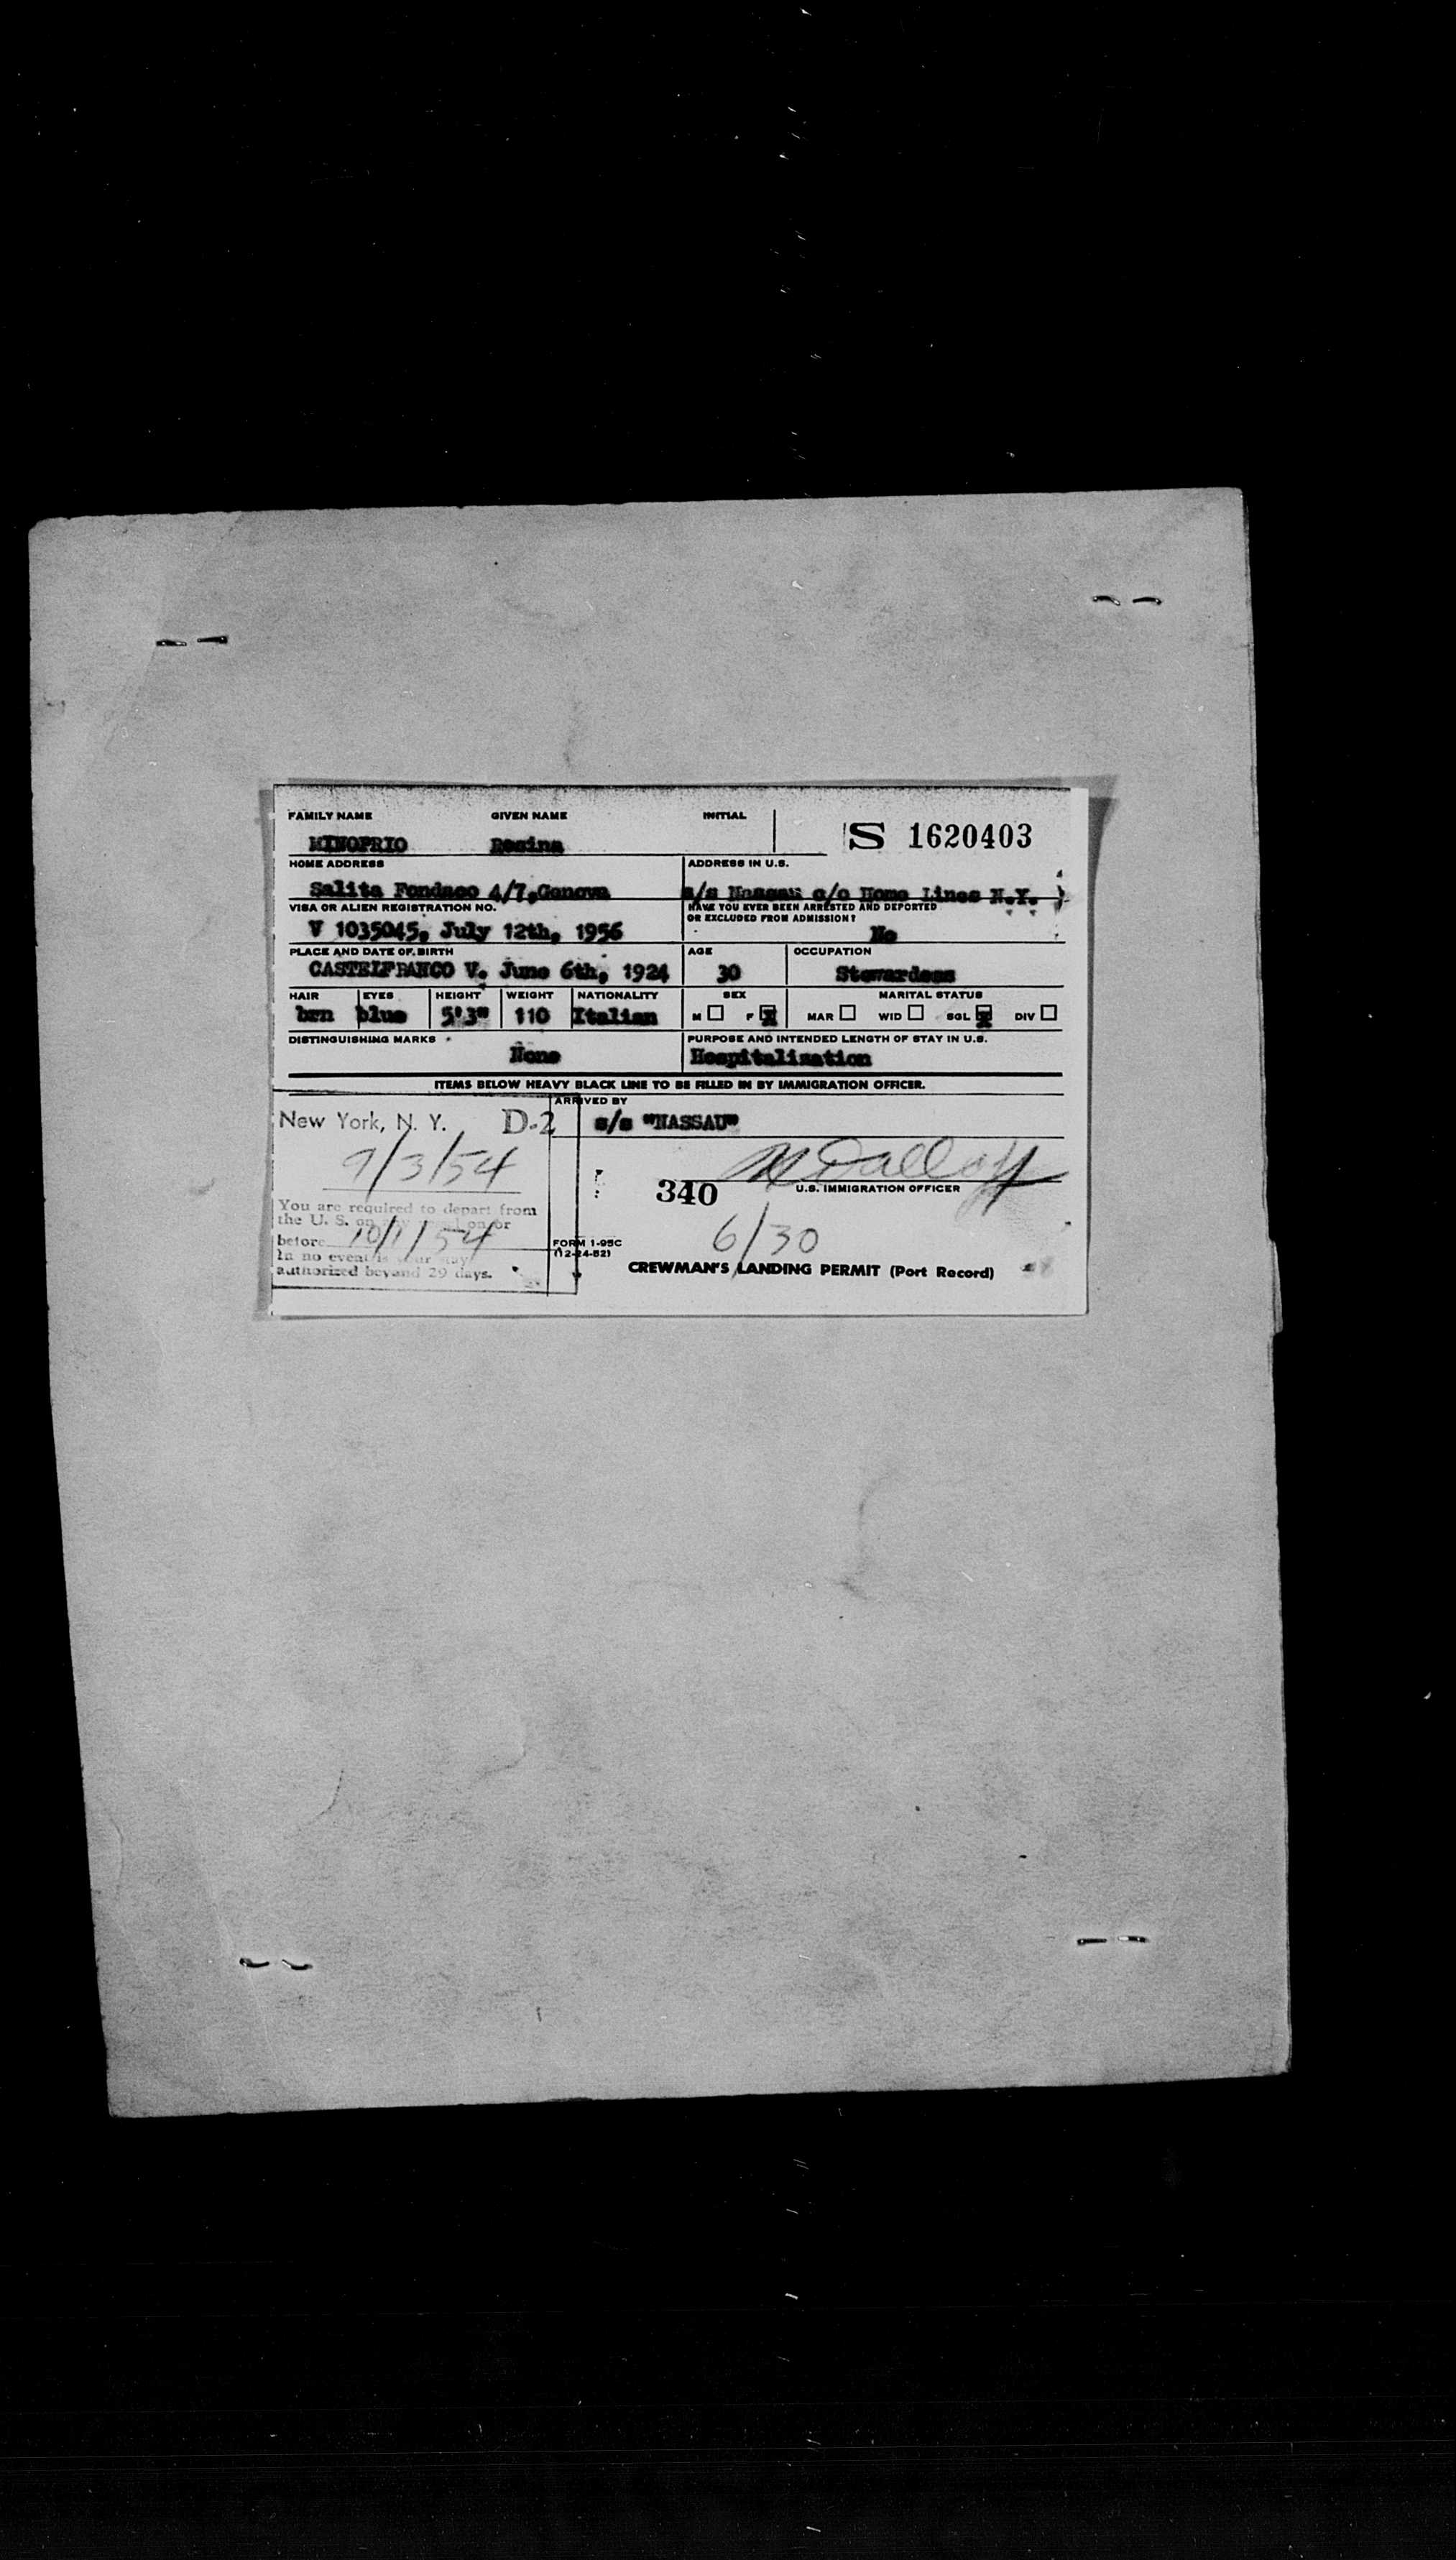 FAMILY NAME GIVEN NAME INITIAL
S 1620403
MINOPRIO Regina
HOME ADDRESS ADDRESS IN U.S.
Salita Fondaco 4/7,Genova s/s Nassau c/o Home Lines N.Y.
VISA OR ALIEN REGISTRATION NO. HAVE YOU EVER BEEN ARRESTED AND DEPORTED
OR EXCLUDED FROM ADMISSION?
V 1035045, July 12th, 1956 No
PLACE AND DATE OF BIRTH AGE OCCUPATION
CASTELFRANCO V. June 6th, 1924 30 Stewardess
HAIR EYES HEIGHT WEIGHT NATIONALITY SEX MARITAL STATUS
brn blue 5'3" 110 Italian M F X MAR WID SGL X DIV
DISTINGUISHING MARKS PURPOSE AND INTENDED LENGTH OF STAY IN U.S.
None Hospitalization
ITEMS BELOW HEAVY BLACK LINE TO BE FILLED IN BY IMMIGRATION OFFICER.
ARRIVED BY
New York, N. Y. D-2 s/s "NASSAU"
9/3/54
340 U.S. IMMIGRATION OFFICER
You are required to depart from
the U. S. on or
before 10/1/54
6/30
FORM I-95C
(12-24-52)
In no event is your stay
authorized beyond 29 days.
CREWMAN'S LANDING PERMIT (Port Record)